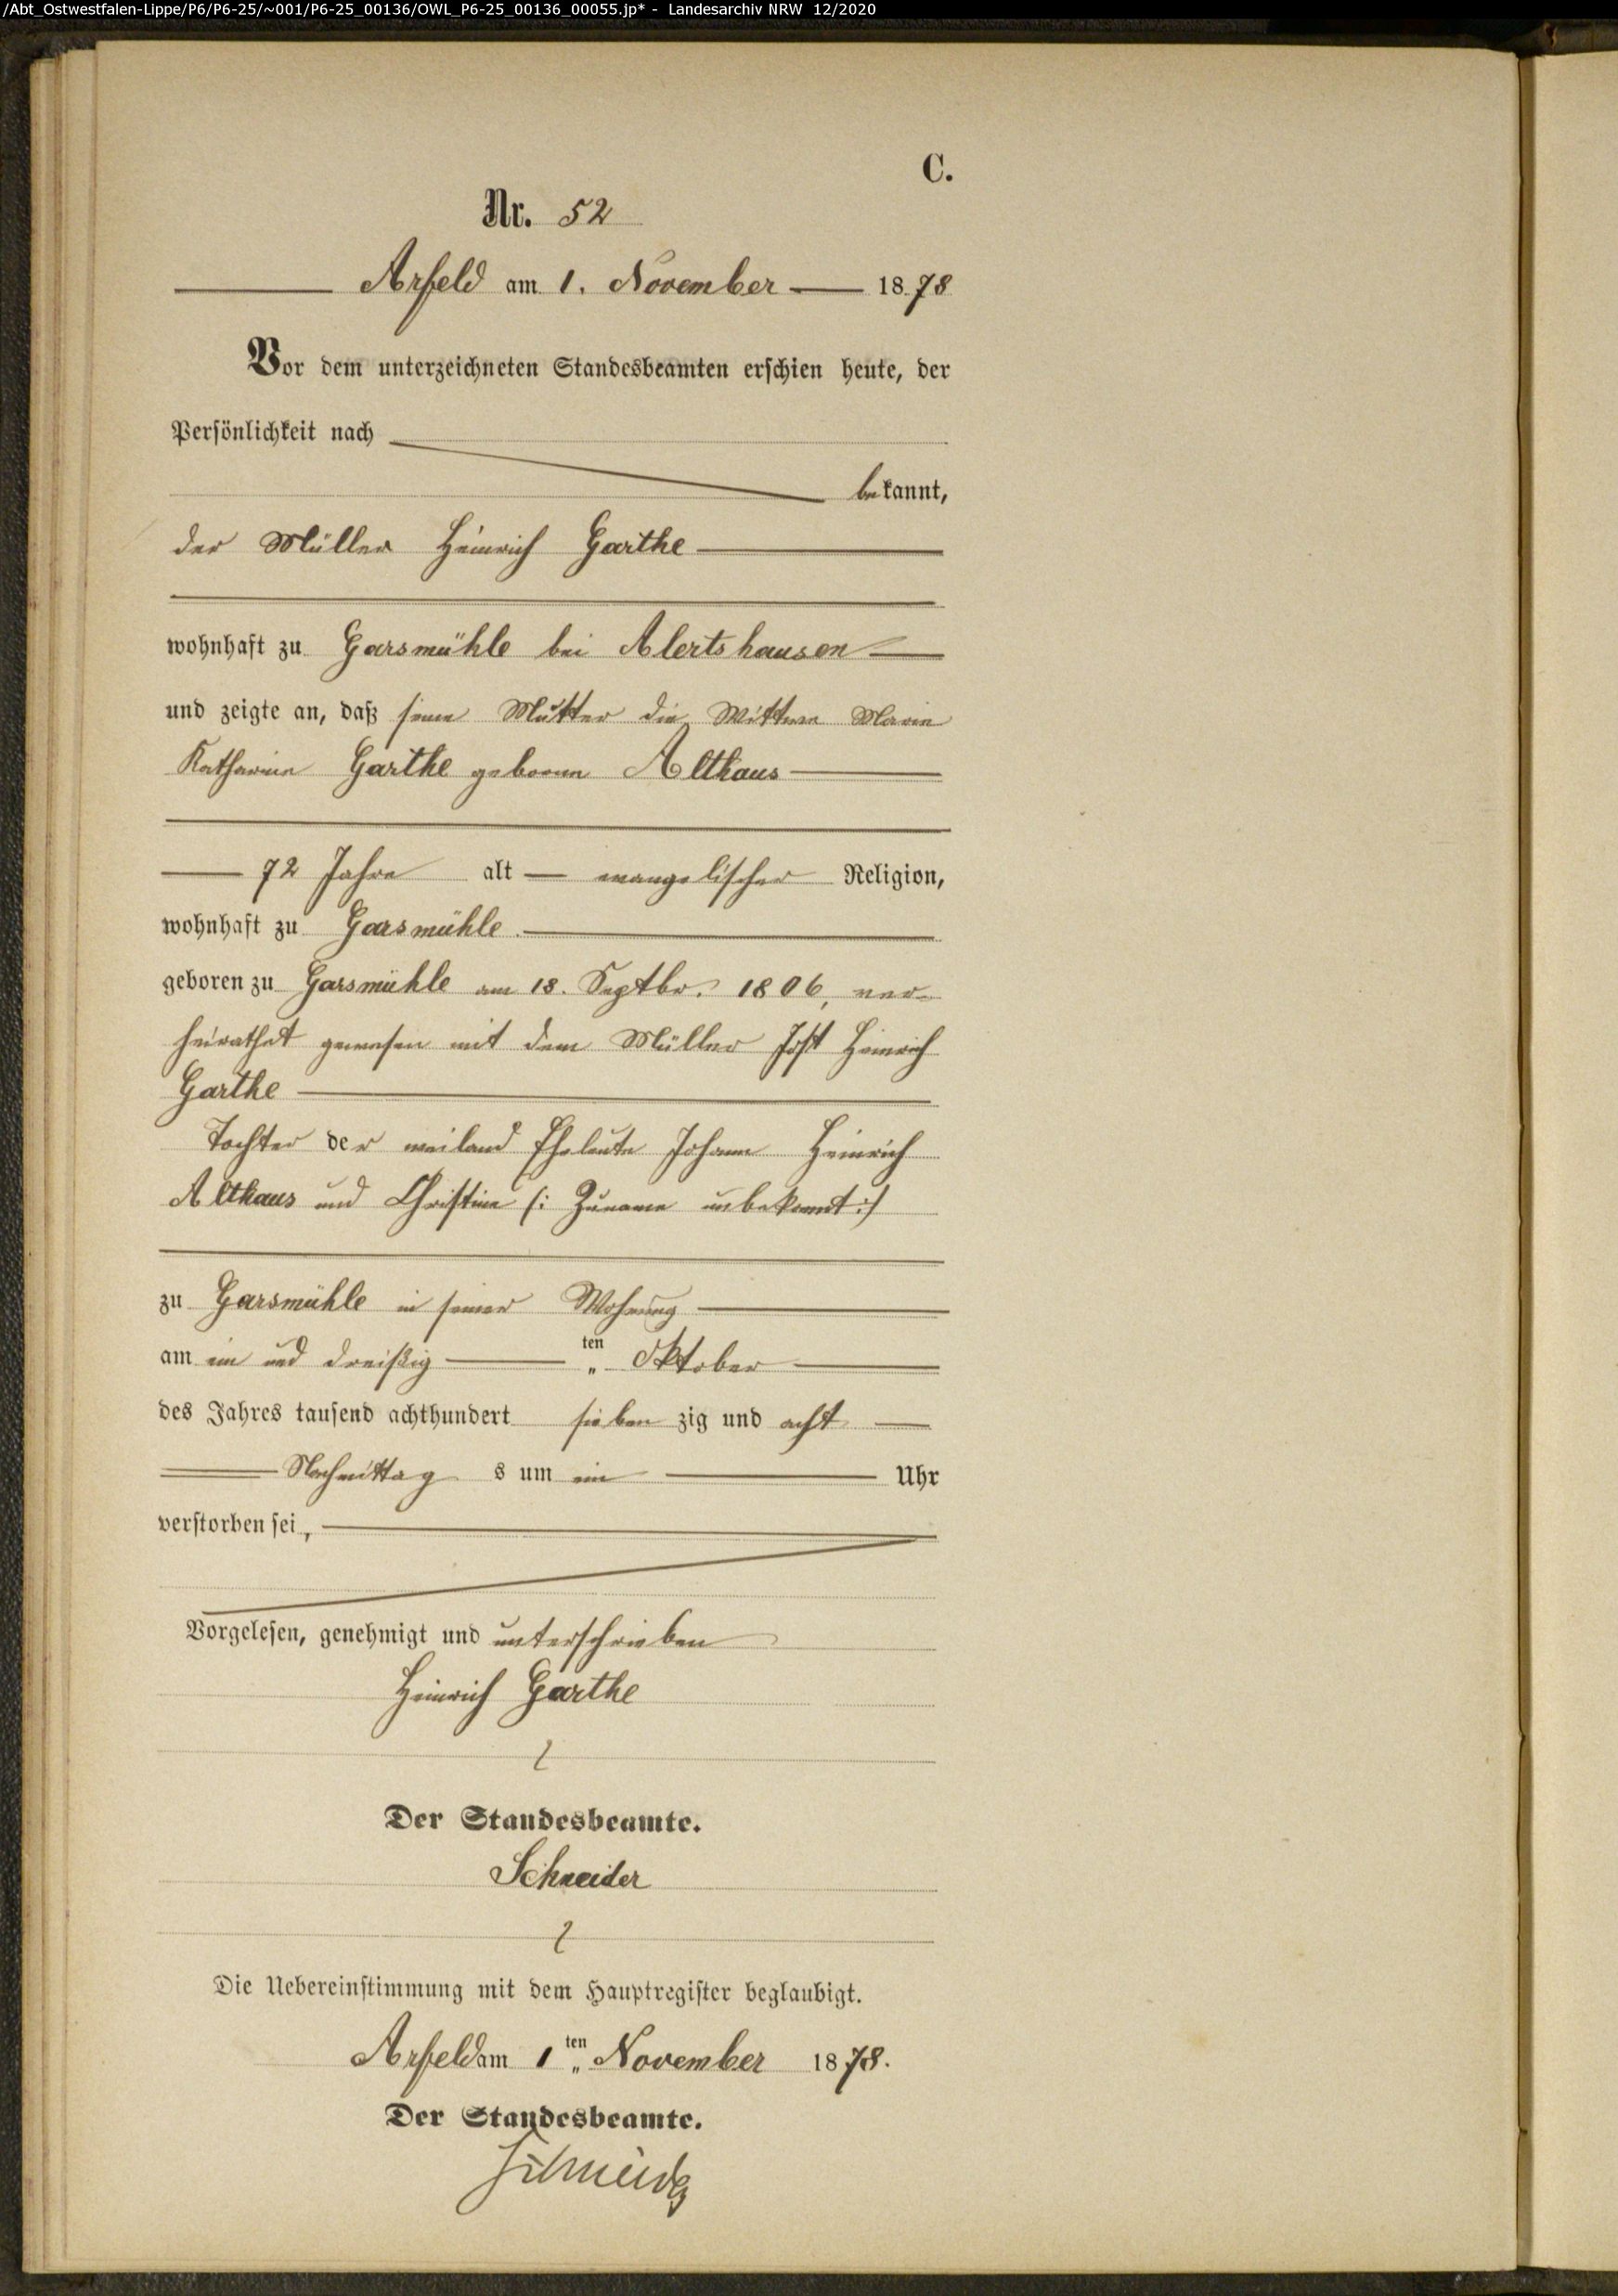 /Abt_Ostwestfalen-Lippe/P6/P6-25/~001/P6-25_00136/OWL_P6-25_00136_00055.jp* - Landesarchiv NRW 12/2020
C.
Nr. 52
Arfeld am 1. November 1878
Vor dem unterzeichneten Standesbeamten erschien heute, der
Persönlichkeit nach
bekannt,
der Müller Heinrich Garthe
wohnhaft zu Garsmühle bei Alertshausen
und zeigte an, daß seine Mutter die Wittwe Marie
Katharine Garthe geborne Althaus
72 Jahre alt evangelischer Religion,
wohnhaft zu Garsmühle
geboren zu Garsmühle am 18. Septbr. 1806, ver-
heirathet gewesen mit dem Müller Jost Heinrich
Garthe
Tochter der weiland Eheleute Johann Heinrich
Althaus und Christine (: Zuname unbekannt :)
zu Garsmühle in seiner Wohnung
am ein und dreißig ten Oktober
des Jahres tausend achthundert siebenzig und acht
Nachmittags um ein Uhr
verstorben sei,
Vorgelesen, genehmigt und unterschrieben
Heinrich Garthe
Der Standesbeamte.
Schneider
Die Uebereinstimmung mit dem Hauptregister beglaubigt.
Arfeld am 1ten November 1878.
Der Standesbeamte.
Schneider